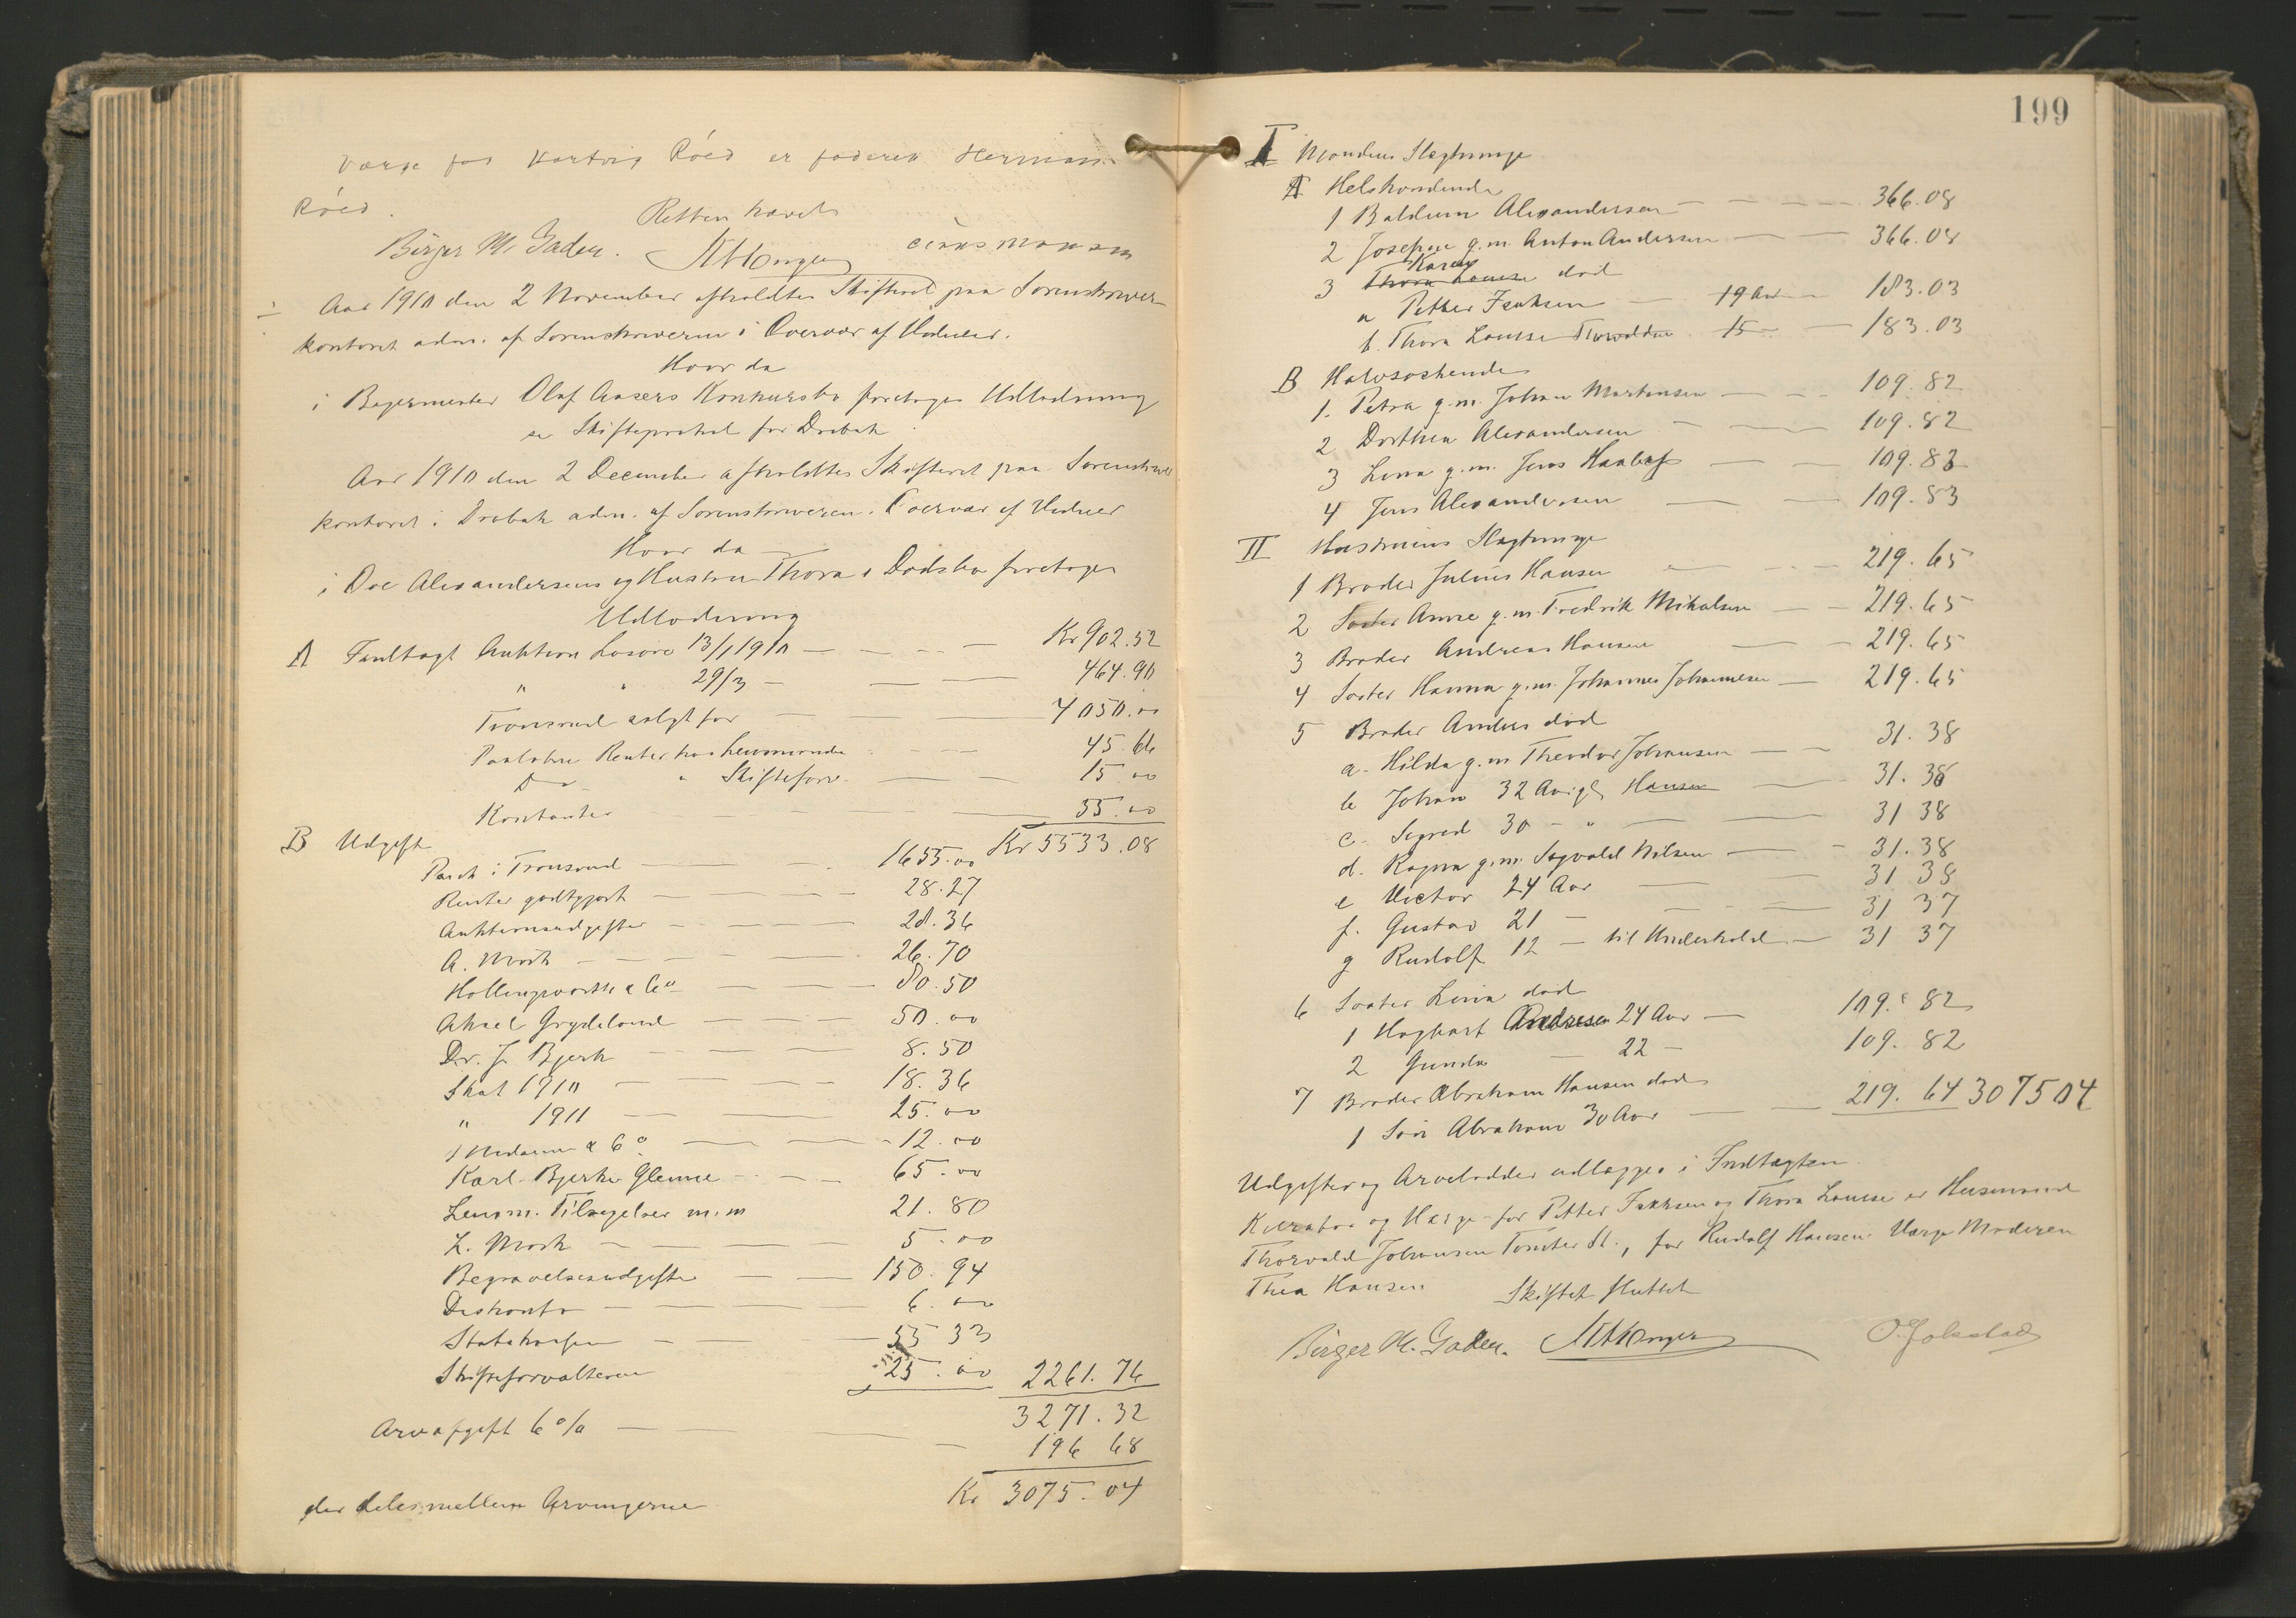 Værge for Hartvig Röed er faderen Herman
Röed.
Retten hævet
Birger M. Gaden.
÷ Aar 1910 den 2 November afholdtes Skifteret paa Sorenskriver-
kontoret adm. af Sorenskriveren i Overvær af Vidner.
Hvor da
i Bagermester Olaf Aasers Konkursbo foretoges Udlodning
se Skifteprotok for Drøbak
Aar 1910 den 2 December afholdtes Skifteret paa Sorenskriver
kontoret i Drøbak adm. af Sorenskriveren i Overvær af Vidner
Hvor da
i Ole Alexandersens og Hustru Thora s Dødsbo foretoges
Udlodning
A Indtægt Auktion Løsøre 13/1 1910 — Kr 902.52
" " 29/3 — 464.90
Tronsrud solgt for — 4050.00
Paaløbne Renter hos Lensmanden — 45.66
Do " Skifteforv. — 15.00
Kontanter — 55.00
Kr 5533.08
B Udgift
Pant i Tronsrud — 1655.00
Renter godtgjort — 28.27
Auktionsudgifter — 28.36
A. Mork — 26.70
Hollingworth & Co — 80.50
Aksel Grydeland — 50.00
Dr. J. Bjerk — 8.50
Skat 1910 — 18.36
" 1911 — 25.00
& Co — 12.00
Karl Bjerke Glenne — 65.00
Lensm. Tilsigelser m.m 21.80
L. Mork — 5.00
Begravelsesudgifter — 150.94
Diskonto — 6.00
Statskassen — 55 33
Skifteforvalteren 25.00 2261.76
3271.32
Arveafgift 6 % — 196 68
der deles mellem Arvingerne Kr 3075.04
199
I Mandens Slægtninge
A Helsøskende
1 Baldum Alexandersen — 366.08
2 Josefine g.m. Anton Andersen — 366.08
Karen
3 Thora Louise død
a Petter Isaksen — 19 Aar — 183.03
b. Thora Louise Thorvaldsen 15 — 183.03
B Halvsøskende
1. Petra g.m. Johan Martinsen — 109.82
2 Dorthea Alexandersen — 109.82
3 Lina g.m. Jens — 109.83
4 Jens Alexandersen — 109.83
II Hustruens Slægtninge
1 Broder Julius Hansen — 219.65
2 Søster Anne g.m. Fredrik Mikalsen — 219.65
3 Broder Andreas Hansen — 219.65
4 Søster Hanna g.m. Johannes Johannesen — 219.65
5 Broder Anders død
a. Hilda g.m Theodor Johansen — 31.38
b Johan 32 Aar gl Hansen — 31.38
c. Sigrid 30 — " — 31 38
d. Ragna g.m. Sigvald Nilsen — 31.38
e Victor 24 Aar — 31 38
f. Gustav 21 — 31 37
g Rudolf 12 — til Underhold — 31 37
6 Søster Lina død
1 Hagbart Andresen 24 Aar — 109.82
2 Gunda — 22 — 109.82
7 Broder Abraham Hansen død
1 Søn Abraham 30 Aar — 219.64 3075 04
Udgifter og Arvelodder udlægges i Indtægten
Kurator og Værge for Petter Isaksen og Thora Louise er Husmand
Thorvald Johansen Tomter St., for Rudolf Hansen Værge Moderen
Thea Hansen Skiftet sluttet
Birger M. Gaden. O. Jolstad